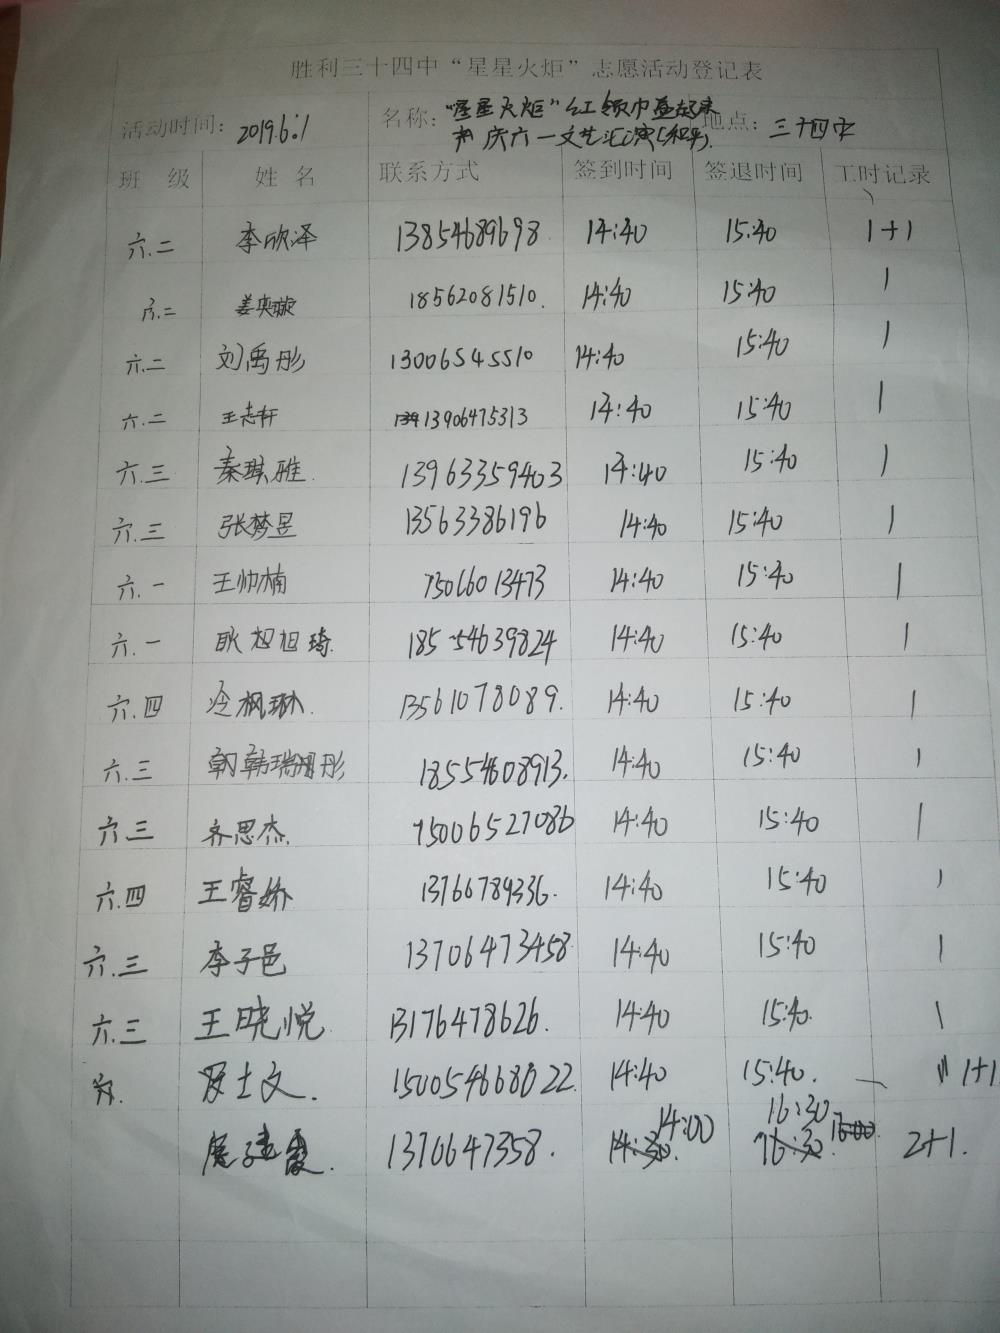 胜利三十四中“星星火炬”志愿活动登记表
活动时间: 2019.6.1 名称: “星星火炬”红领巾 地点: 三十四中
庆六一文艺汇演
班 级 姓 名 联系方式 签到时间 签退时间 工时记录
六.二 李欣泽 13854689698 14:40 15:40 1+1
六.二 姜奥璇 18562081510. 14:40 15:40 1
六.二 刘禹彤 13006545510 14:40 15:40 1
六.二 王志轩 13906475313 14:40 15:40 1
六.三 秦琪雅. 13963359403 14:40 15:40 1
六.三 张梦昱 13563386196 14:40 15:40 1
六.一 王帅楠 15066013473 14:40 15:40 1
六.一 旭琦. 18554639824 14:40 15:40 1
六.四 冷枫琳. 13561078089. 14:40 15:40 1
六.三 韩瑞彤 18554608913. 14:40 15:40 1
六.三 齐思杰. 15006527086 14:40 15:40 1
六.四 王睿娇 13766789336. 14:40 15:40 1
六.三 李子邑 13706473458 14:40 15:40 1
六.三 王晓悦 13176478626. 14:40 15:40. 1
士文. 150054668022. 14:40 15:40. 1+1
霞. 1370647358. 14:00 16:30 2+1.